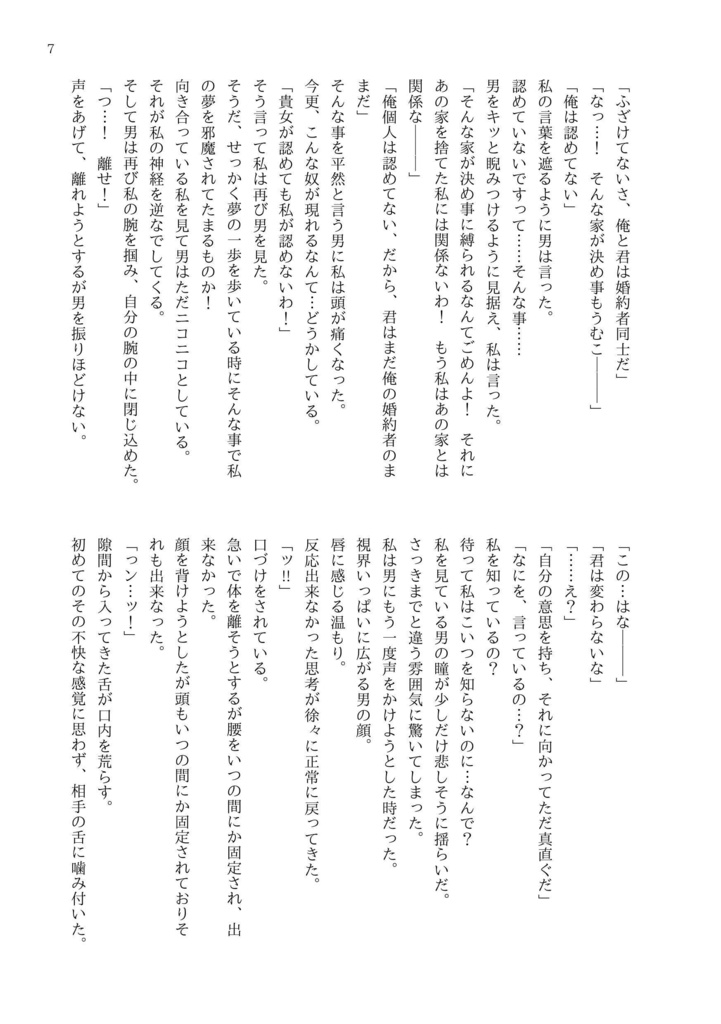 7
「ふざけてないさ、俺と君は婚約者同士だ」
「なっ…！　そんな家が決め事もうむこ―――」
「俺は認めてない」
私の言葉を遮るように男は言った。
認めていないですって……そんな事……
男をキッと睨みつけるように見据え、私は言った。
「そんな家が決め事に縛られるなんてごめんよ！　それに
あの家を捨てた私には関係ないわ！　もう私はあの家とは
関係な―――」
「俺個人は認めてない、だから、君はまだ俺の婚約者のま
まだ」
そんな事を平然と言う男に私は頭が痛くなった。
今更、こんな奴が現れるなんて…どうかしている。
「貴女が認めても私が認めないわ！」
そう言って私は再び男を見た。
そうだ、せっかく夢の一歩を歩いている時にそんな事で私
の夢を邪魔されてたまるものか！
向き合っている私を見て男はただニコニコとしている。
それが私の神経を逆なでしてくる。
そして男は再び私の腕を掴み、自分の腕の中に閉じ込めた。
「つ…！　離せ！」
声をあげて、離れようとするが男を振りほどけない。
「この…はな―――」
「君は変わらないな」
「……え？」
「自分の意思を持ち、それに向かってただ真直ぐだ」
「なにを、言っているの…？」
私を知っているの？
待って私はこいつを知らないのに…なんで？
私を見ている男の瞳が少しだけ悲しそうに揺らいだ。
さっきまでと違う雰囲気に驚いてしまった。
私は男にもう一度声をかけようとした時だった。
視界いっぱいに広がる男の顔。
唇に感じる温もり。
反応出来なかった思考が徐々に正常に戻ってきた。
「ッ!!」
口づけをされている。
急いで体を離そうとするが腰をいつの間にか固定され、出
来なかった。
顔を背けようとしたが頭もいつの間にか固定されておりそ
れも出来なかった。
「っン…ッ！」
隙間から入ってきた舌が口内を荒らす。
初めてのその不快な感覚に思わず、相手の舌に噛み付いた。